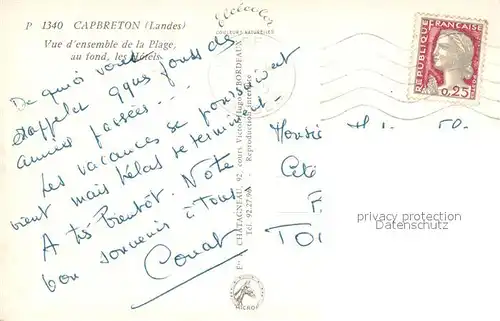 P 1340 CAPBRETON (Landes)
Vue d'ensemble de la Plage,
au fond, les Hôtels.
Elcécolor
COULEURS NATURELLES
De quoi vous
rappeler qques jours des
années passées...
Les vacances se poursuivent
vient mais hélas se terminent
A très bientôt. Notre
bon souvenir à Tous
CHATAGNEAU, 92, cours Victor-Hugo - BORDEAUX
Tél. 92.27.90 - Reproduction interdite
REPUBLIQUE FRANÇAISE
0,25
Cité
F
TO
privacy protection
Datenschutz